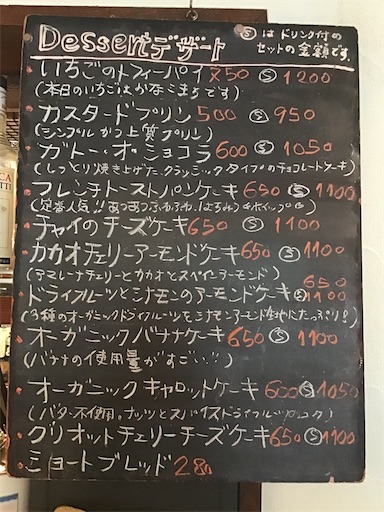 Dessert デザート
Ⓢはドリンク付の
セットの金額です。
いちごのトフィーパイ 750 Ⓢ 1200
(本日のいちごはかなこまちです)
カスタードプリン 500 Ⓢ 950
(シンプルかつ上質プリン)
ガトー・オ・ショコラ 600 Ⓢ 1050
(しっとり焼き上げたクラシックタイプのチョコレートケーキ)
フレンチトーストパンケーキ 650 Ⓢ 1100
(定番人気!!あつあつふわふわ、はちみつ+ホイップ
チャイのチーズケーキ 650 Ⓢ 1100
カカオチェリーアーモンドケーキ 650 Ⓢ 1100
(アマレーナチェリーとカカオとスペインアーモンド)
ドライフルーツとシナモンのアーモンドケーキ 650 Ⓢ 1100
(3種のオーガニックドライフルーツをシナモンアーモンド生地にたっぷり!)
オーガニックバナナケーキ 650 Ⓢ 1100
(バナナの使用量がすごい!!)
オーガニックキャロットケーキ 600 Ⓢ 1050
(バター不使用。ナッツとスパイスドライフルーツ
グリオットチェリーチーズケーキ 650 Ⓢ 1100
ショートブレッド 280